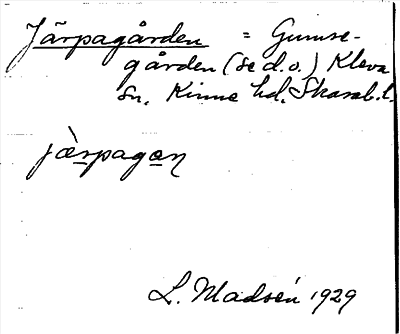 Järpagården = Gumse-
gården (se d. o.) Kleva
sn. Kinne hd. Skarab. l.
jærpagən
L. Madsén 1929